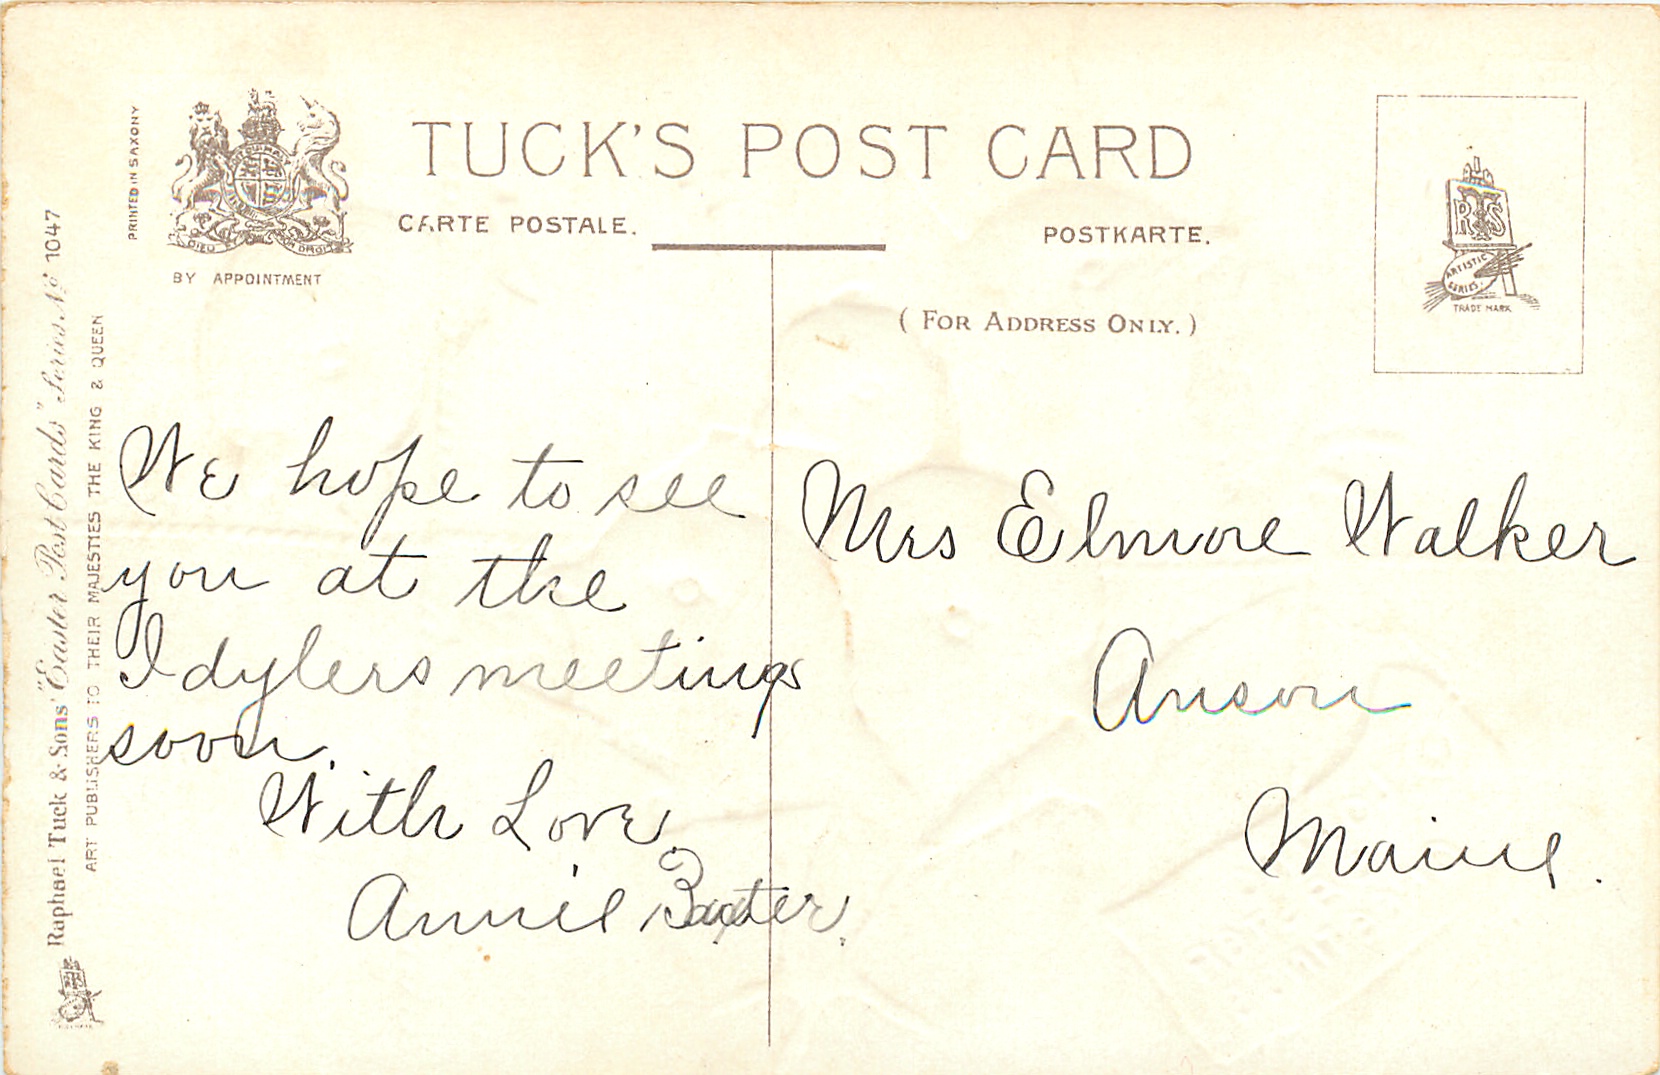 TUCK'S POST CARD
CARTE POSTALE.
POSTKARTE.
(FOR ADDRESS ONLY.)
PRINTED IN SAXONY
DIEU ET MON DROIT
BY APPOINTMENT
RTS
ARTISTIC
SERIES.
TRADE MARK
Raphael Tuck & Sons' "Easter Post Cards" Series No 1047
ART PUBLISHERS TO THEIR MAJESTIES THE KING & QUEEN
We hope to see
you at the
Idylers meetings
soon.
With Love,
Annie Baxter.
Mrs Elmore Walker
Anson
Maine.